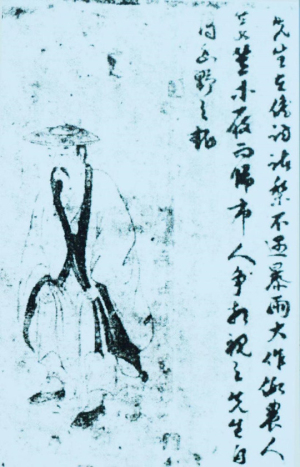 先生在儋訪諸黎不遇暴雨大作假農人
箬笠木屐而歸市人爭相視之先生自
得幽野之趣